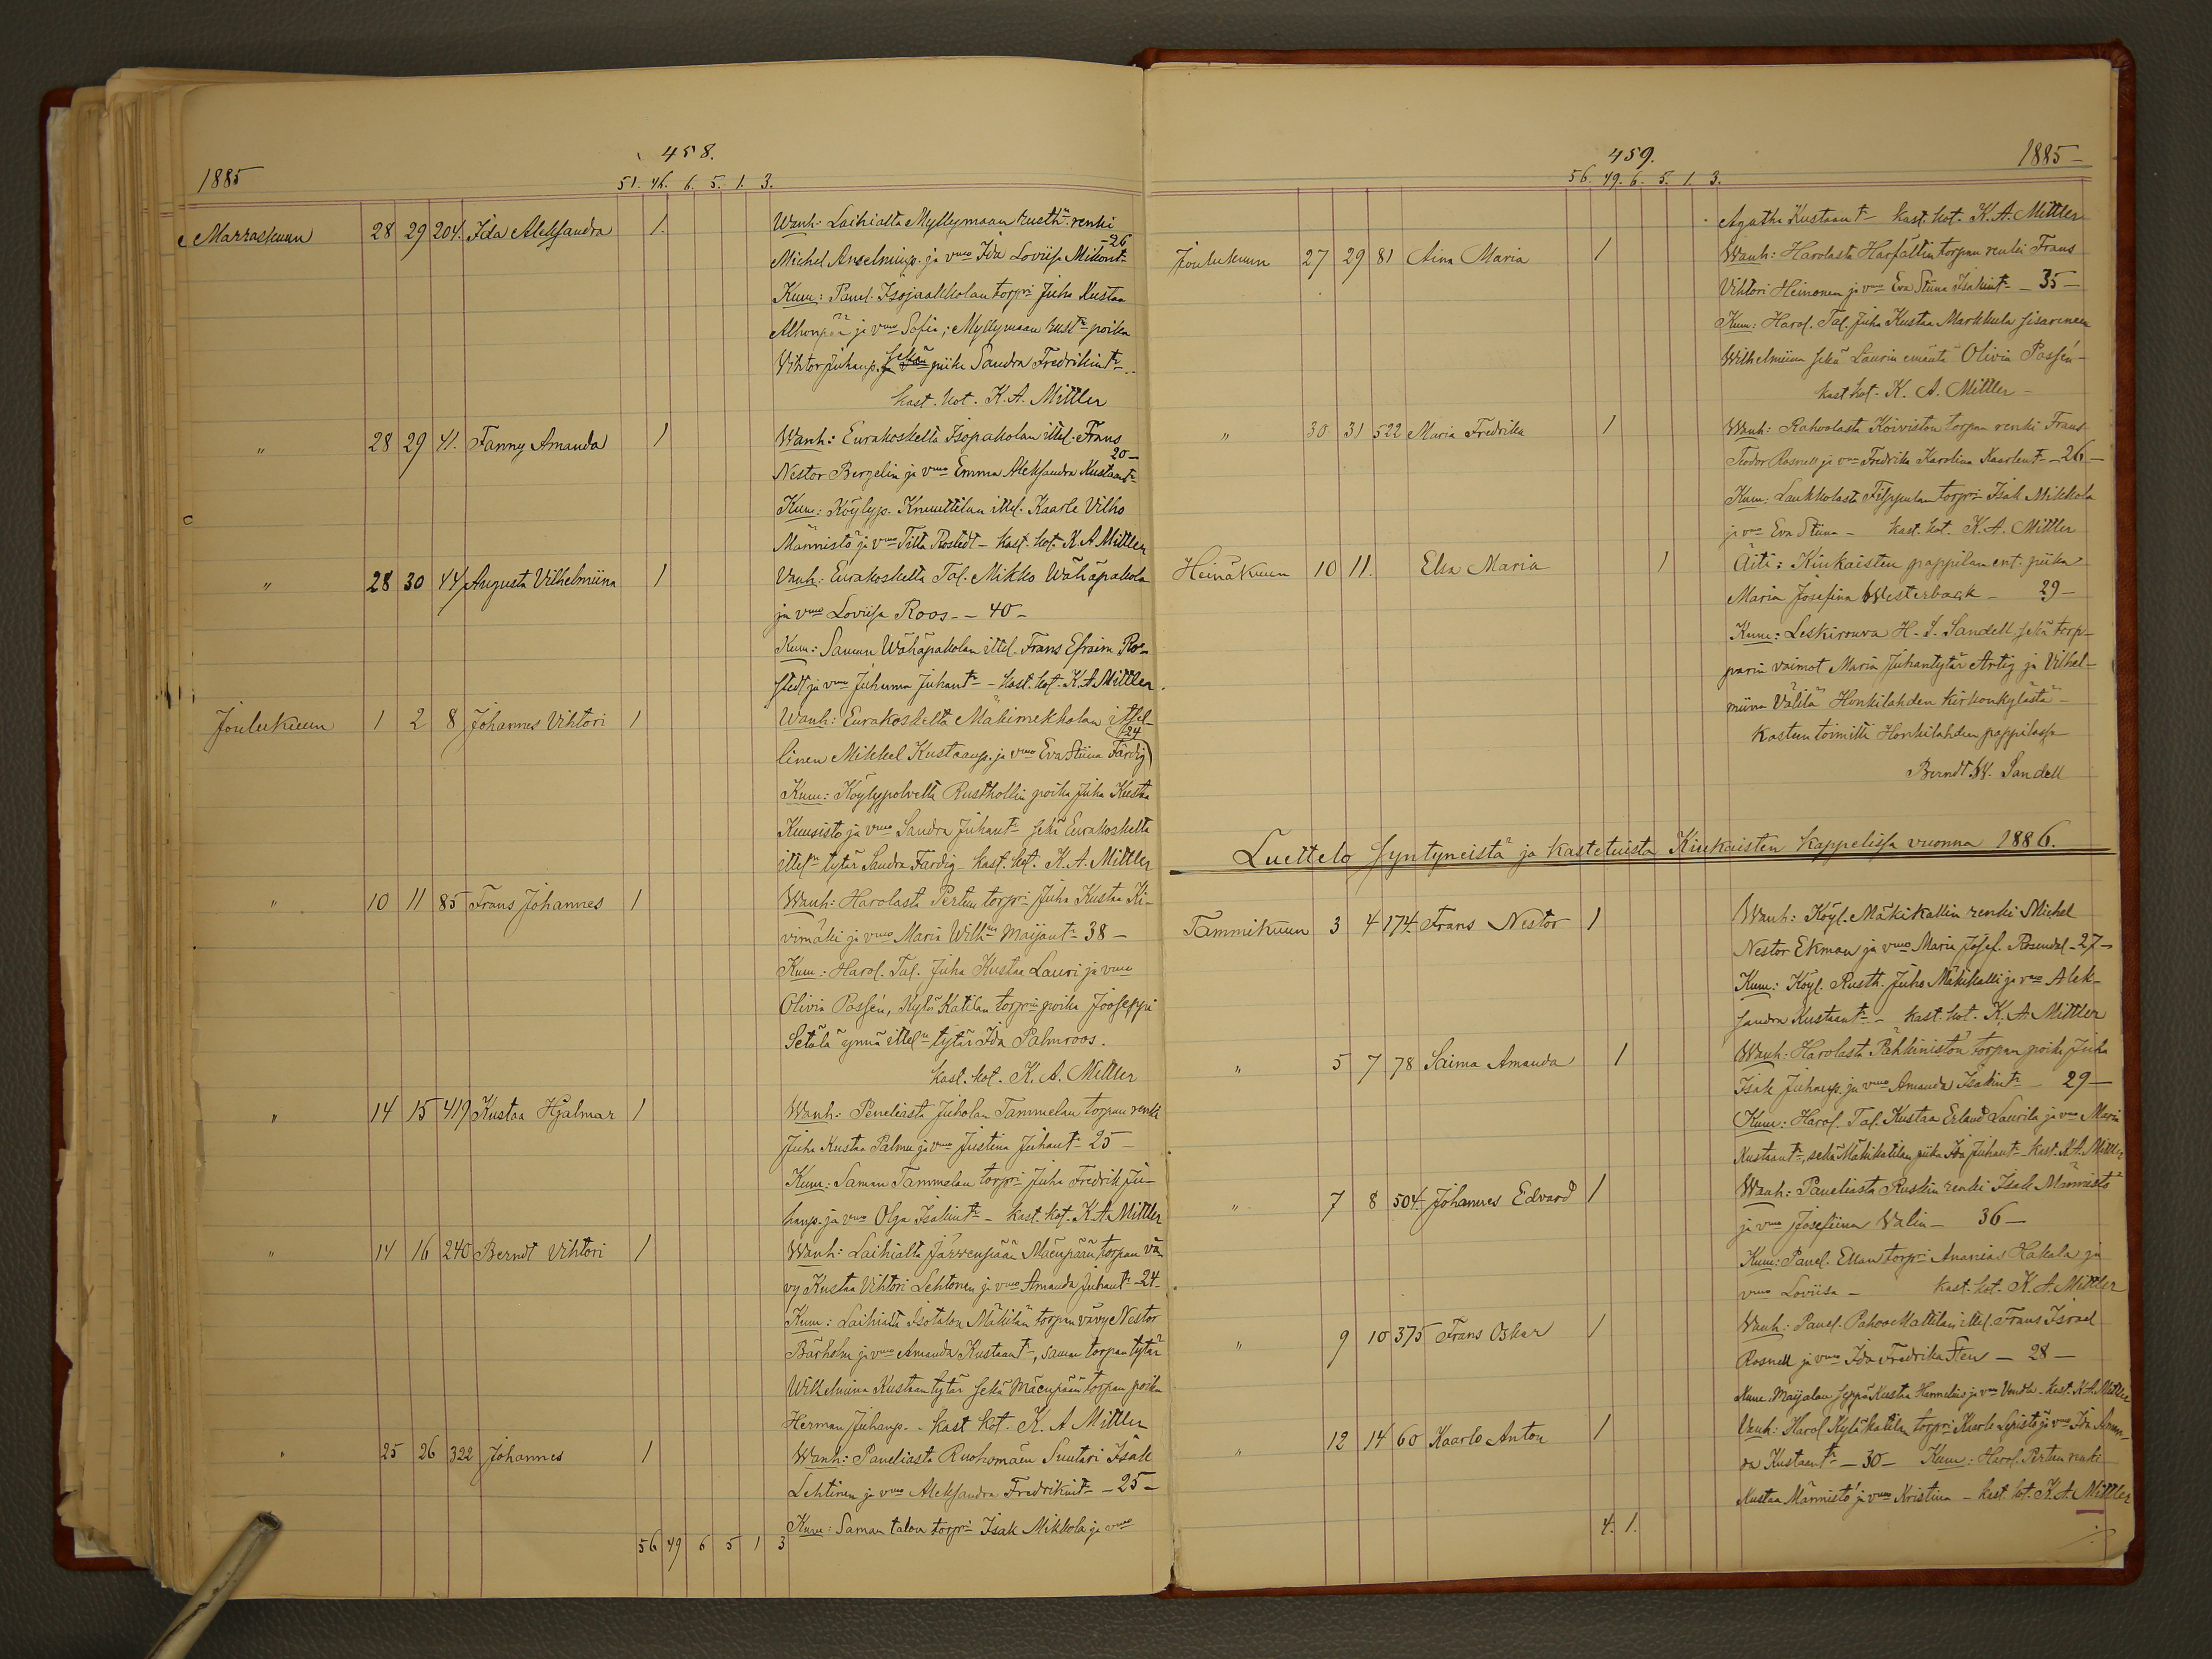 458.
1885
51. 46. 6. 5. 1. 3.
Marraskuun 28 29 204. Ida Aleksandra 1. Wanh: Laihialta Myllymaan rusth:n renki
Michel Anselminp. ja vmo Ida Loviisa Mikont: -26
Kum: Panel. Isojaakkolan torpri Juha Kustaa
ja vmo Sofia; Myllymaan rust:n poika
Vihtor Juhanp. sekä piika Sandra Fredrikint:
kast. kot. K. A. Mittler
" 28 29 41. Fanny Amanda 1 Wanh: Eurakoskelta Isopakolan ittel. Frans
Nestor Bergelin ja vmo Emma Aleksandra Kustaant: 20-
Kum: Köylyp. Knuuttilan ittel. Kaarle Vilho
Männistö ja vmo Tilta Rostedt - kast. kot. K. A Mittler
" 28 30 44 Augusta Vilhelmiina 1 Vanh: Eurakoskelta Tal. Mikko Wähäpakola
ja vmo Loviisa Roos - 40 -
Kum: Saman Wähäpakolan ittel. Frans Efraim Ro-
stedt ja vmo Juhanna Juhant: - kast. kot. K. A Mittler
Joulukuun 1 2 8 Johannes Vihtori 1 Wanh: Eurakoskelta Mäkimekkolan ittel-
linen Mikkel Kustaanp. ja vmo Eva Stiina Färdig 24
Kum: Köylypolvelta Rusthollin poika Juha Kustaa
Kuusisto ja vmo Sandra Juhant: sekä Eurakoskelta
ittel:n tytär Sandra Färdig kast. kot. K. A. Mittler
" 10 11 85 Frans Johannes 1 Wanh: Harolasta Perttu torpri Juha Kustaa Ki-
vimäki ja vmo Maria Wilh:na Maijant: 38 -
Kum: Harol. Tal. Juha Kustaa Lauri ja vmo
Olivia Possén, Kylä Katilan torprin poika Jooseppi
Setälä ynnä ittel:n tytär Ida Palmroos.
kast. kot. K. A. Mittler
" 14 15 419 Kustaa Hjalmar 1 Wanh: Peneliasta Juholan Tammelan torpan renki
Juha Kustaa Palmu ja vmo Justina Juhant: 25 -
Kum: Saman Tammelan torpri Juha Fredrik Ju-
hanp. ja vmo Olga Isakint: - kast. kot. K. A Mittler
" 14 16 240 Berndt Vihtori 1 Wanh: Laihialta Järvenpään Mäenpään torpan vä-
vy Kustaa Vihtori Lehtonen ja vmo Amanda Juhant: -24-
Kum: Laihialta Isotalon Mäkilän torpan vävy Nestor
Bärholm ja vmo Amanda Kustaant:, saman torpan tytär
Wilhelmina Kustaan tytär sekä Mäenpään torpan poika
Herman Juhanp. - kast kot. K. A Mittler
" 25 26 322 Johannes 1 Wanh: Paneliasta Ruohomäen Suutari Isak
Lehtinen ja vmo Aleksandra Fredrikint: - 25 -
Kum: Saman talon torpri Isak Mikkola ja vmo
56 49 6 5 1 3
459.
1885
56. 49. 6. 5. 1. 3.
Agatha Kustaant: kast. kot. K. A. Mittler
Joulukuun 27 29 81 Aina Maria 1 Wanh: Harolasta Harfaltin torpan renki Frans
Vihtori Heinonen ja vmo Eva Stiina Isakint: - 35 -
Kum: Harol. Tal. Juha Kustaa Markkula sisarineen
Wilhelmiina sekä Laurin emäntä Olivia Possén -
kast kot. K. A. Mittler -
" 30 31 522 Maria Fredrika 1 Wanh: Rahvolasta Koiviston torpan renki Frans
Teodor Rosnell ja vmo Fredrika Karolina Kaarlent: - 26 -
Kum: Laukkolasta Filppulan torpri Isak Mikkola
ja vmo Eva Stiina - kast. kot. K. A. Mittler
Heinäkuun 10 11. Elsa Maria 1 Äiti: Kiukaisten pappilan ent. piika
Maria Josefina Westerback - 29 -
Kum: Leskirouva H. S. Sandell, sekä torp-
parin vaimot Maria Juhantytär Artig ja Vilhel-
miina Välilä Honkilahden kirkonkylästä -
Kasteen toimitti Honkilahden pappilassa
Berndt W. Sandell
Luettelo syntyneistä ja kastetuista Kiukaisten kappelissa vuonna 1886.
Tammikuun 3 4 174. Frans Nestor 1 Wanh: Köyl. Mäkikallin renki Michel
Nestor Ekman ja vmo Maria Josef. Rosendal - 27 -
Kum: Köyl. Rusth. Juho Mäkikalli ja vmo Alek-
sandra Kustaant: - kast. kot. K. A. Mittler
" 5 7 78 Saima Amanda 1 Wanh: Harolasta Pähkinistön torpan poika Juha
Isak Juhanp. ja vmo Amanda Isakint: - 29 -
Kum: Harol. Tal. Kustaa Erland Laurila ja vmo Maria
Kustaant:, sekä Mäkikatilan piika Ida Juhant: kast. K. A. Mittler
" 7 8 504. Johannes Edvard 1 Wanh: Paneliasta Ruskin renki Isak Männistö
ja vmo Josefiina Walin - 36 -
Kum: Panel. Ellan torpri Ananias Hakala ja
vmo Loviisa - kast. kot. K. A. Mittler
" 9 10 375 Frans Oskar 1 Wanh: Panel. Pahoo Mattilan ittel. Frans Israel
Rosnell ja vmo Ida Fredrika Sten - 28 -
Kum. Maijalan seppä Kustaa Hannelius ja vmo Vendla - kast. K. A. Mittler
" 12 14 60 Kaarlo Anton 1 Vanh: Harol Kyläkatilan torpri Kaarle Lepistö ja vmo Ida Aman-
da Kustaant: - 30 - Kum: Harol. Perttun renki
Kustaa Männistö ja vmo Kristina - kast. kot. K. A. Mittler
4. 1.